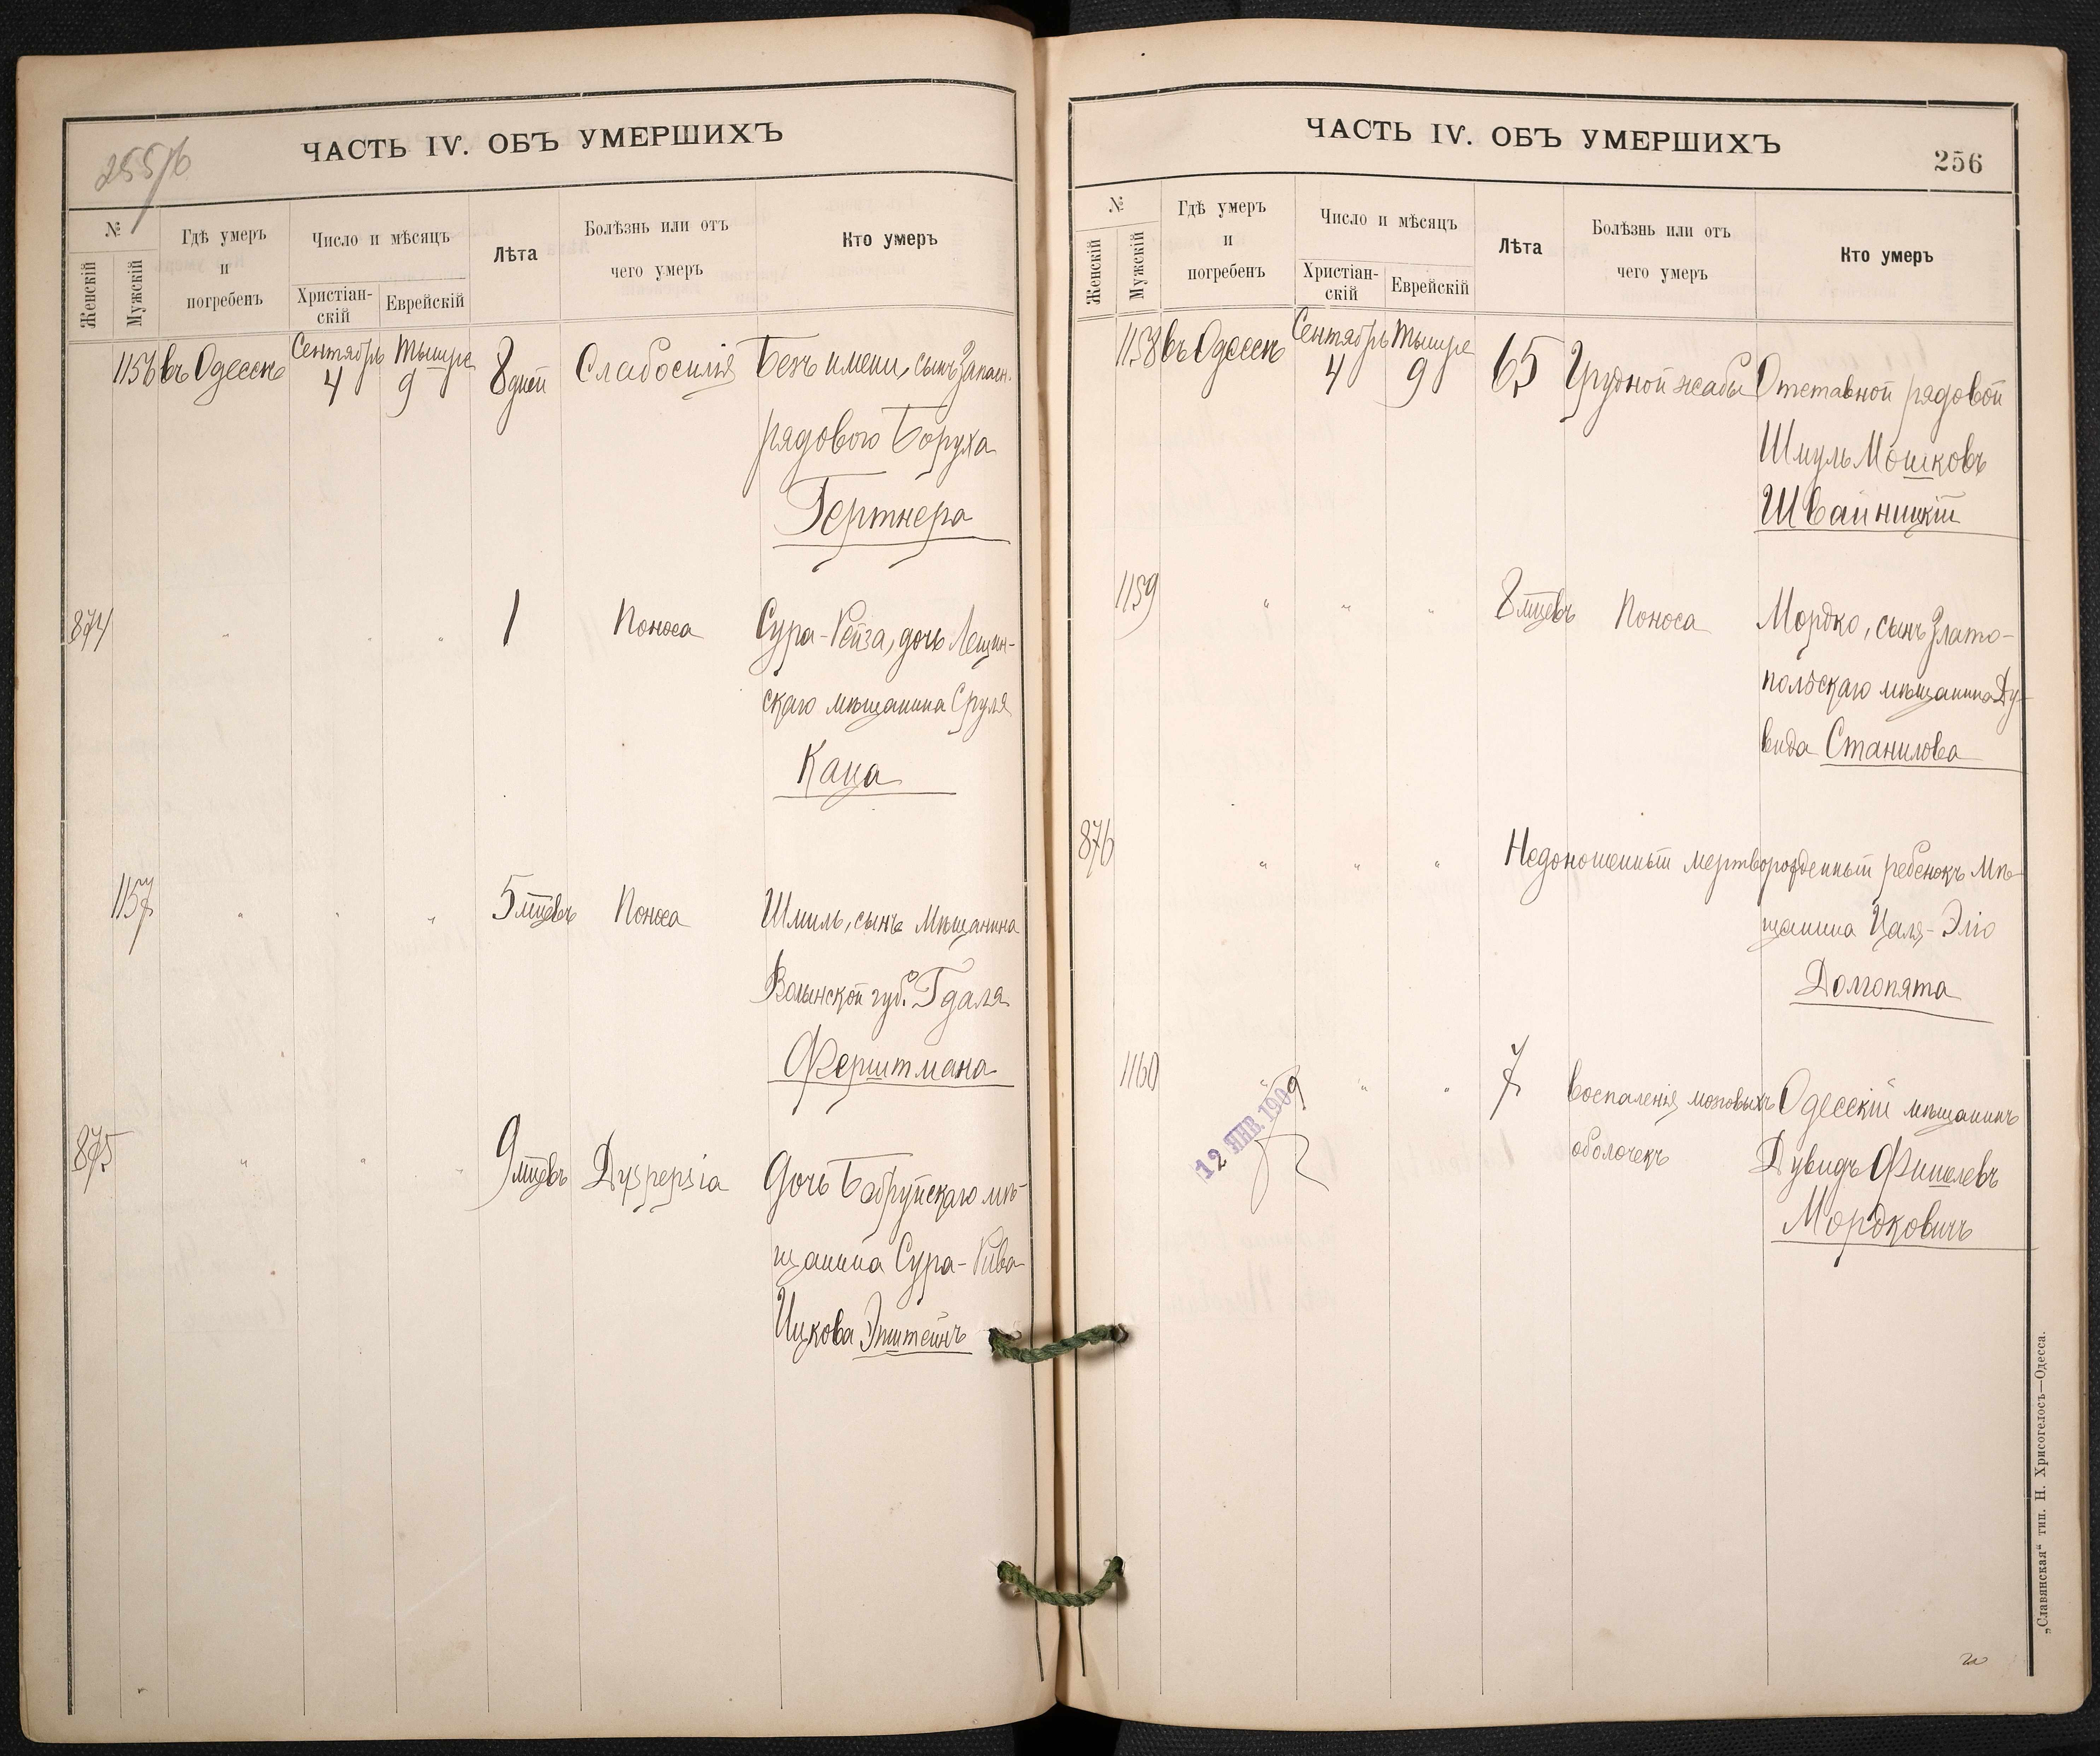 255/б
ЧАСТЬ IV. ОБЪ УМЕРШИХЪ
№
Женскій
Мужскій
Гдѣ умеръ
и
погребенъ
Число и мѣсяцъ
Христіан-
скій
Еврейскій
Лѣта
Болѣзнь или отъ
чего умеръ
Кто умеръ
1156 въ Одессѣ Сентябрь 4 Тышре 9 8 дней Слабосилія Безъ имени, сынъ Запасн.
рядового Боруха
Гертнера
874 " " " 1 Поноса Сура-Рейза, дочь Лещин-
скаго мѣщанина Сруля
Каца
1157 " " " 5 мцевъ Поноса Шмиль, сынъ Мѣщанина
Волынской губ. Гдаля
Ферштмана
875 " " " 9 мцевъ Dyspepsia Дочь Бобруйскаго мѣ-
щанина Сура-Рива
Ицкова Эпштейнъ
ЧАСТЬ IV. ОБЪ УМЕРШИХЪ
256
№
Женскій
Мужскій
Гдѣ умеръ
и
погребенъ
Число и мѣсяцъ
Христіан-
скій
Еврейскій
Лѣта
Болѣзнь или отъ
чего умеръ
Кто умеръ
1158 въ Одессѣ Сентябрь 4 Тышре 9 65 Грудной жабы Отставной рядовой
Шмуль Мошковъ
Швайницкій
1159 " " " 8 мцевъ Поноса Мордко, сынъ Злато-
польскаго мѣщанина Ду-
вида Станилова
876 " " " Недоношенный мертворожденный ребенокъ Мѣ-
щанина Цаля-Элю
Долгопята
1160 " " " 7 воспаленія мозговыхъ Одесскій мѣщанинъ
оболочекъ Дувидъ Фишелевъ
Мордковичъ
12 ЯНВ. 1909
„Славянская“ тип. Н. Хрисогелосъ—Одесса.